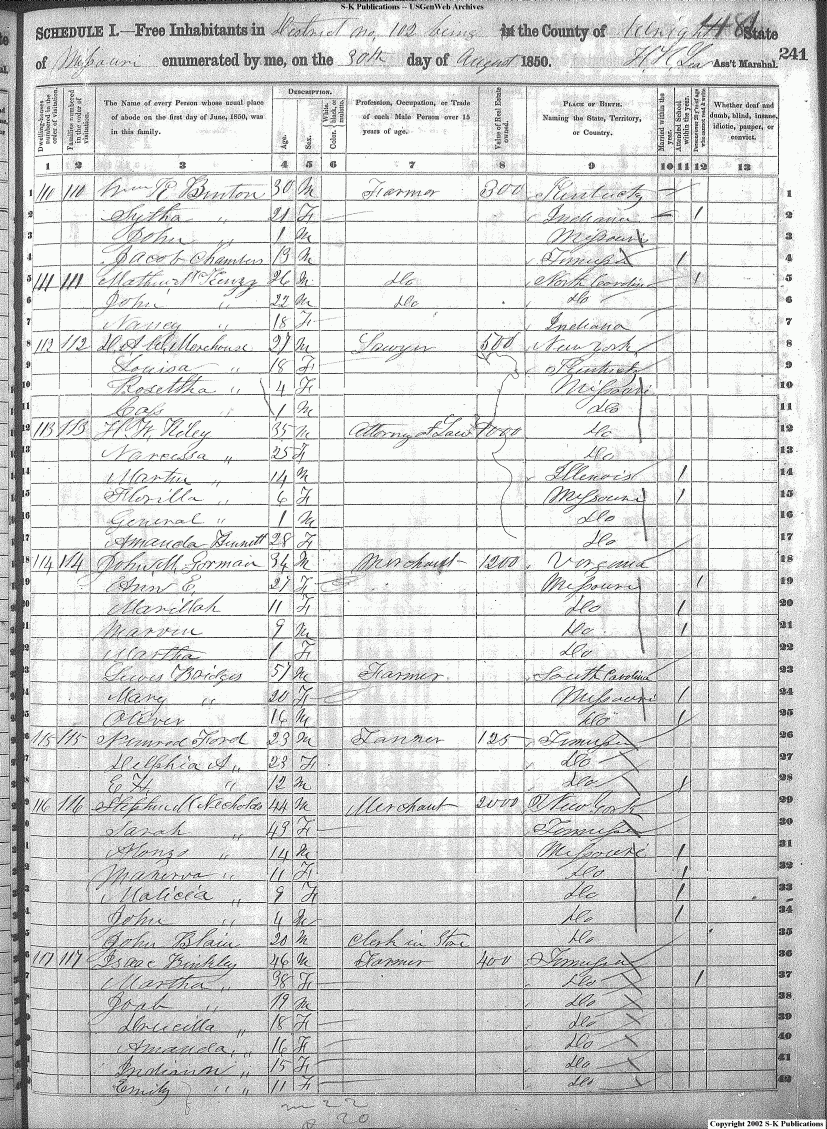 S-K Publications – USGenWeb Archives
SCHEDULE I.—Free Inhabitants in District No. 102 being in the County of Knight 481 State 241
of Missouri enumerated by me, on the 30th day of August 1850. Ass't Marshal.
Dwelling-houses numbered in the order of visitation. Families numbered in the order of visitation. The Name of every Person whose usual place of abode on the first day of June, 1850, was in this family. DESCRIPTION. Age. Sex. Color. White, black, or mulatto. Profession, Occupation, or Trade of each Male Person over 15 years of age. Value of Real Estate owned. PLACE OF BIRTH. Naming the State, Territory, or Country. Married within the year. Attended School within the year. Persons over 20 y'rs of age who cannot read & write. Whether deaf and dumb, blind, insane, idiotic, pauper, or convict.
1 2 3 4 5 6 7 8 9 10 11 12 13
1 110 110 Wm R Binton 30 M Farmer 300 Kentucky 1
2 Sytha " 21 F Indiana 1 2
3 John " 1 M Missouri 3
4 Jacob Chambers 13 M Tennessee 1 4
5 111 111 Mathew McKenzy 26 M do North Carolina 1 5
6 John " 22 M do do 6
7 Nancy " 18 F Indiana 7
8 112 112 Morehouse 27 M Lawyer 500 New York 8
9 Louisa " 18 F Kentucky 9
10 Rosettha " 4 F Missouri 10
11 Cass " 1 M do 11
12 113 113 35 M Attorney at Law 1000 do 12
13 Narcissa " 25 F do 13
14 Martin " 14 M Illinois 1 14
15 Florilla " 6 F Missouri 1 15
16 General " 1 M do 16
17 Amanda 28 F do 17
18 114 114 John M Gorman 34 M Merchant 1200 Virginia 18
19 Ann E. 27 F Missouri 1 19
20 Marillah 11 F do 1 20
21 Marvin 9 M do 1 21
22 Martha 1 F do 22
23 Lewis Bridges 57 M Farmer South Carolina 23
24 Mary " 20 F Missouri 1 24
25 Oliver 16 M do 1 25
26 115 115 Nimrod Ford 23 M Tanner 125 Tennessee 26
27 Delphia A " 23 F do 27
28 E. F. " 12 M do 1 28
29 116 116 Stephen M Necholds 44 M Merchant 2000 New York 29
30 Sarah " 43 F Tennessee 30
31 Alonzo " 14 M Missouri 1 31
32 Manerva " 11 F do 1 32
33 Malicia " 9 F do 1 33
34 John " 4 M do 1 34
35 John Blain 20 M Clerk in Store do 35
36 117 117 Isaac Binkley 46 M Farmer 400 Tennessee 36
37 Martha " 38 F do 1 37
38 Joab " 19 M do 38
39 Drucilla " 18 F do 39
40 Amanda " 16 F do 40
41 Indiana " 15 F do 41
42 Emily " " 11 F do 42
m 22
20
Copyright 2002 S-K Publications